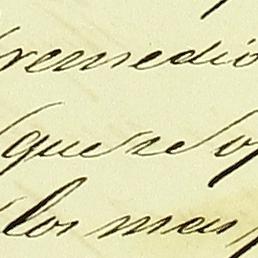 remedio
que se op
los mas